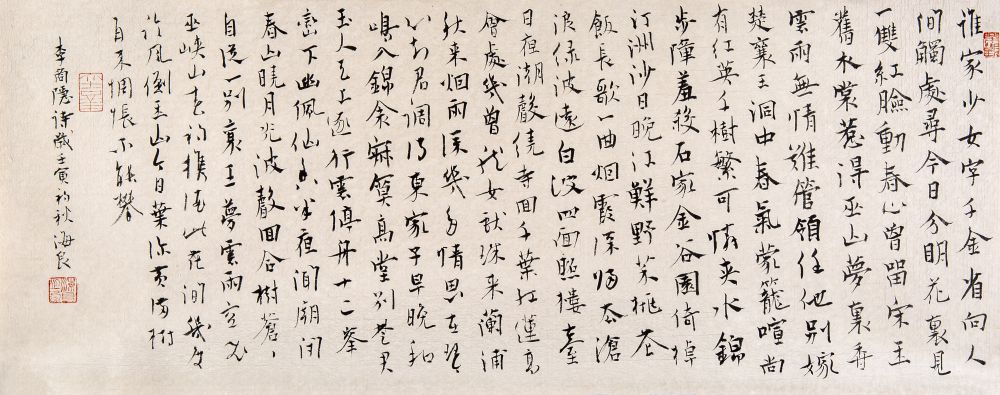 谁家少女字千金省向人
間觸處尋今日分明花裏見
一雙紅臉動春心曾留宋玉
舊衣裳惹得巫山夢裏香
雲雨無情難管領任他別嫁
楚襄王洞中春氣蒙籠暄尚
有紅英千樹繁可憐夾水錦
步障羞殺石家金谷園倚棹
汀洲沙日晚江鮮野菜桃花
飯長歌一曲烟霞深歸去滄
浪绿波遠白波四面照樓臺
日夜潮聲繞寺回千葉红蓮高
會處幾曾龙女獻珠來蘭浦
秋来烟雨深幾多情思在琴
心知君調得東家子早晚和
鳴入錦衾寐簟高堂別楚君
玉人天上逐行雲停舟十二峯
巒下幽佩仙香半夜聞廟闭
春山曉月光波聲回合樹蒼〻
自從一别襄王夢雲雨空飛
巫峡山初携酒此花間幾度
臨風倒玉山今日葉深黄满樹
再来惆悵不能攀
李商隐詩歲壬寅初秋海良